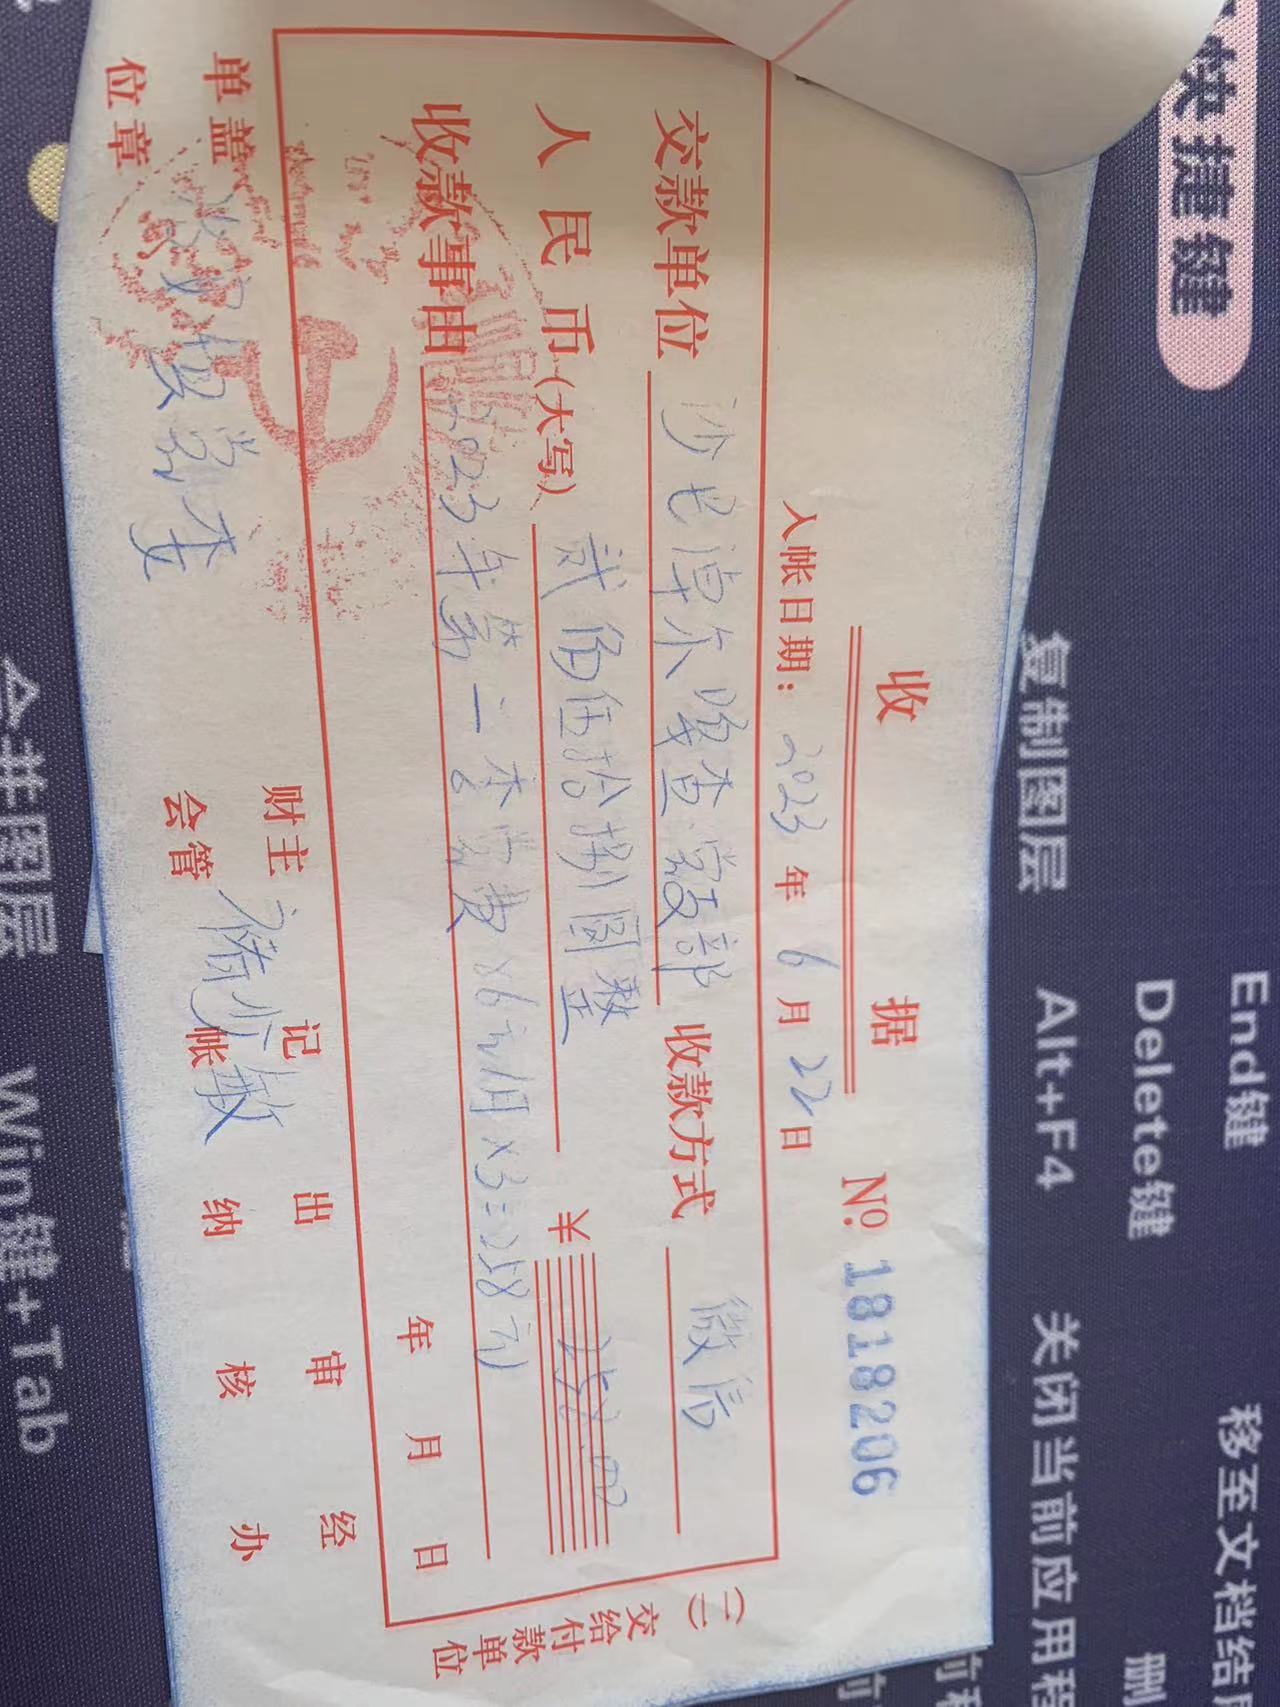 收 据
№ 1818206
入帐日期: 2023 年 6 月 22 日
交款单位 收款方式 微信
人民币(大写) 贰佰伍拾捌圆整 ¥ 258.00
收款事由 2023年第二季党费 86元/月×3=258元
年 月 日
单位盖章 财会主管 记帐 出纳 审核 经办
(二)交给付款单位
快捷键
End键
Delete键
复制图层 Alt+F4 关闭当前应用程
移至文档结
合并图层 Win键+Tab
删